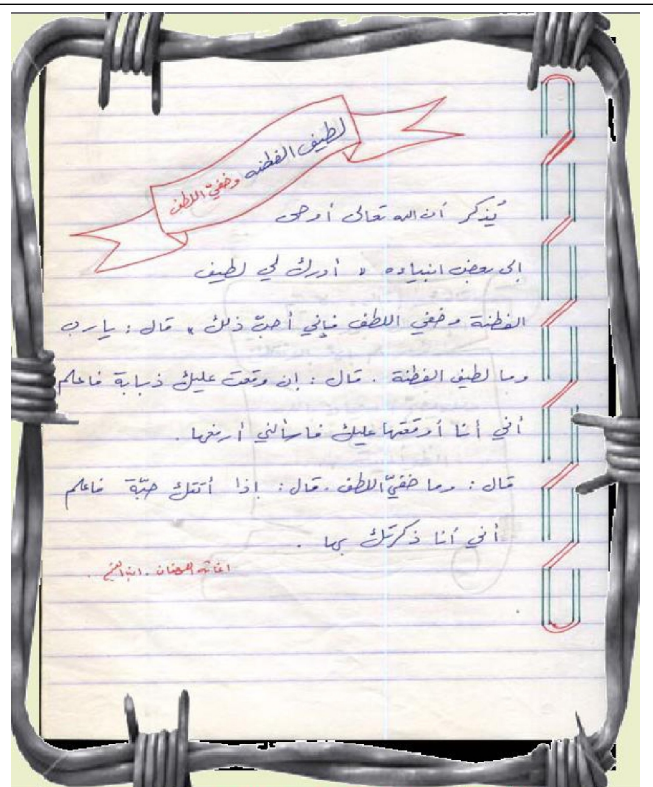 لطيف الفطنة وخفيّ اللطف
يُذكر أن الله تعالى أوحى
إلى بعض انبياءه « أدرك لي لطيف
الفطنة وخفي اللطف فإني أحبّ ذلك » قال : يا رب
وما لطيف الفطنة . قال : إن وقعت عليك ذبابة فاعلم
أني أنا أوقعتها عليك فاسألني أرفعها .
قال : وما خفيّ اللطف . قال : إذا أتتك حبّة فاعلم
أني أنا ذكرتك بها .
اغاثة اللهفان . ابن القيم .